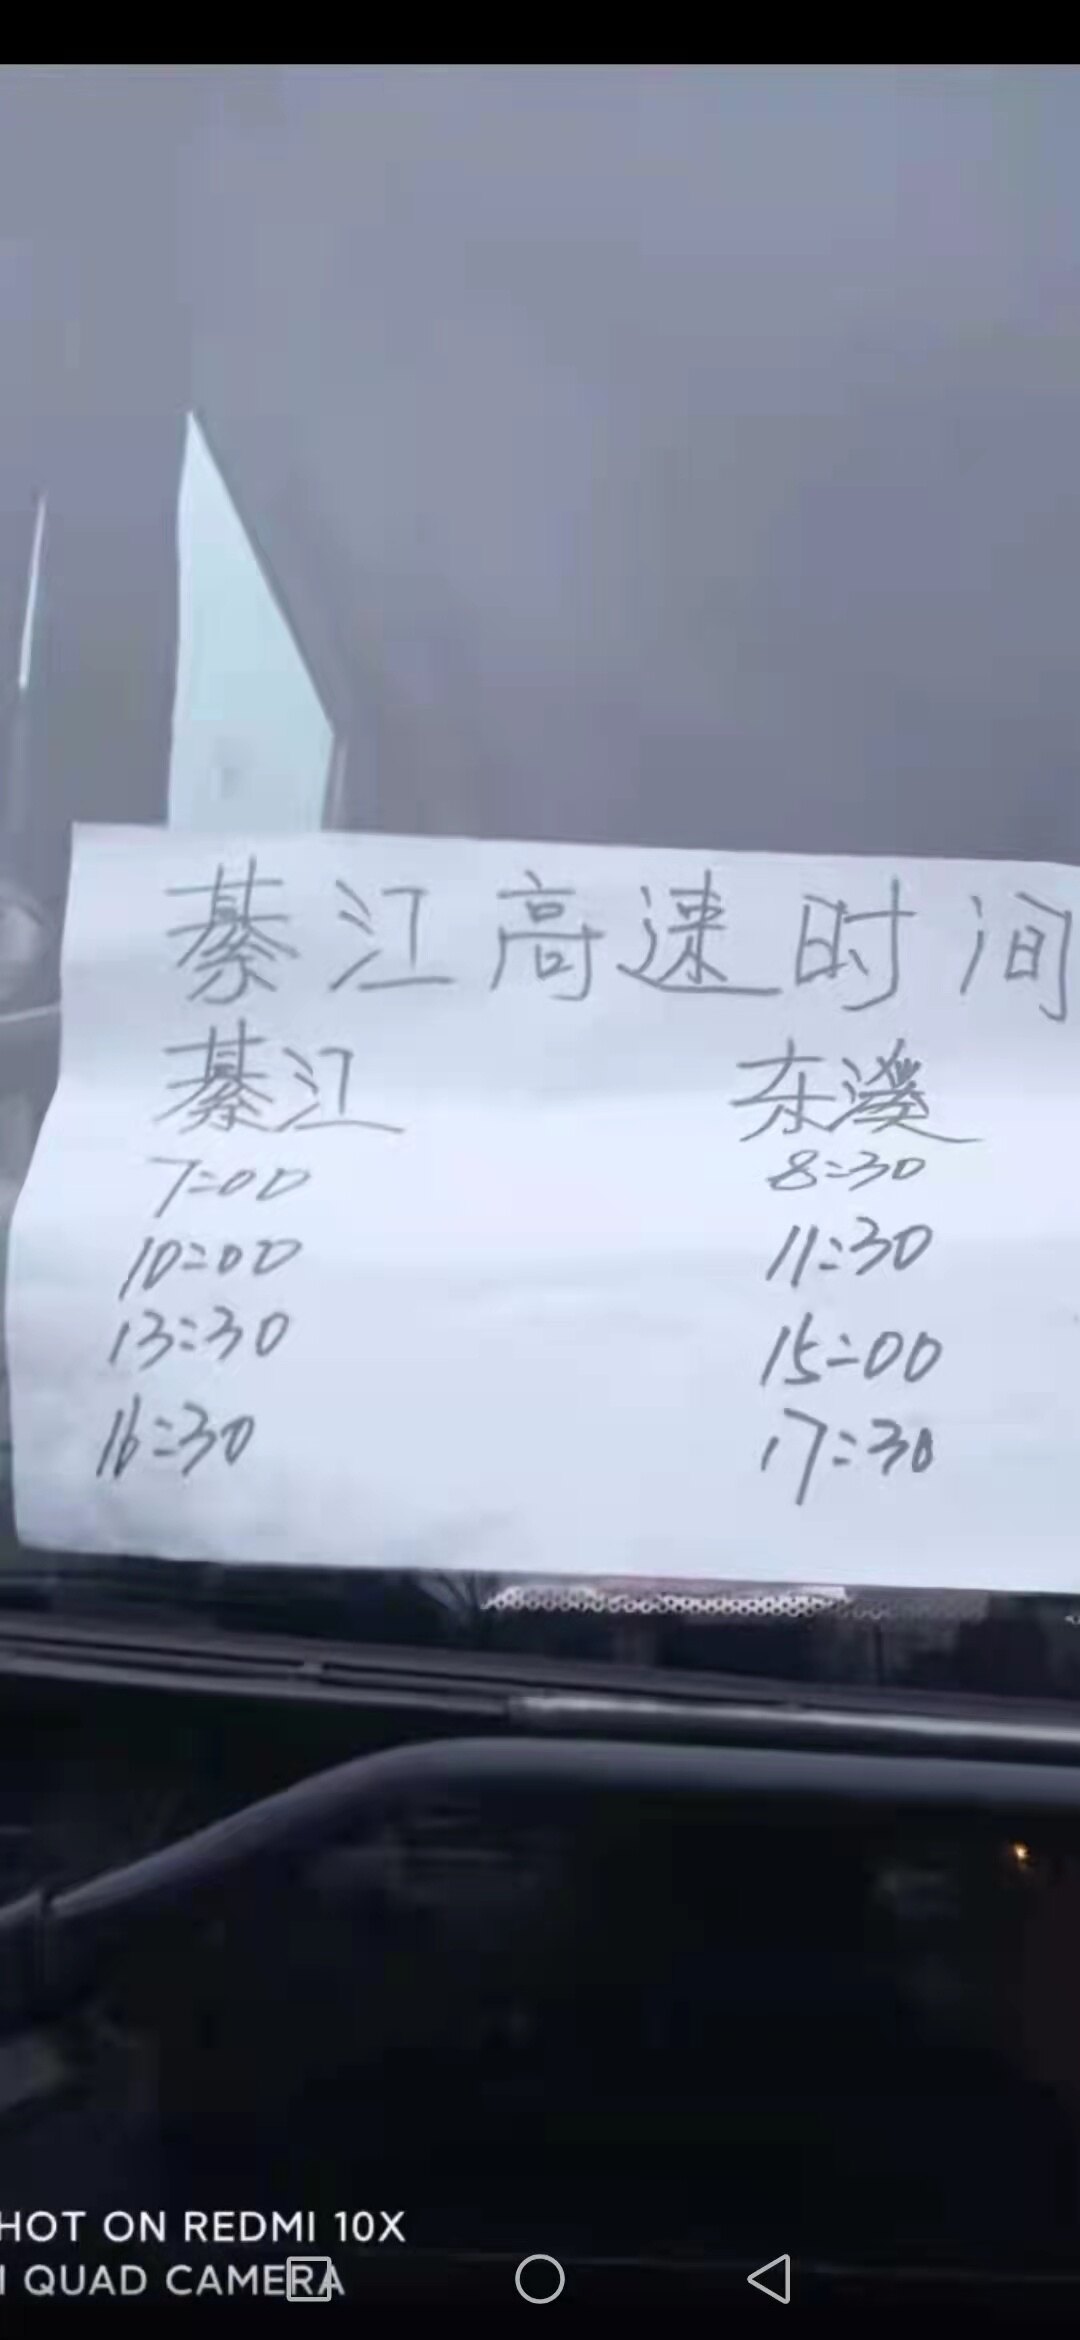 綦江高速时间
綦江 东溪
7:00 8:30
10:00 11:30
13:30 15:00
16:30 17:30
HOT ON REDMI 10X
I QUAD CAMERA